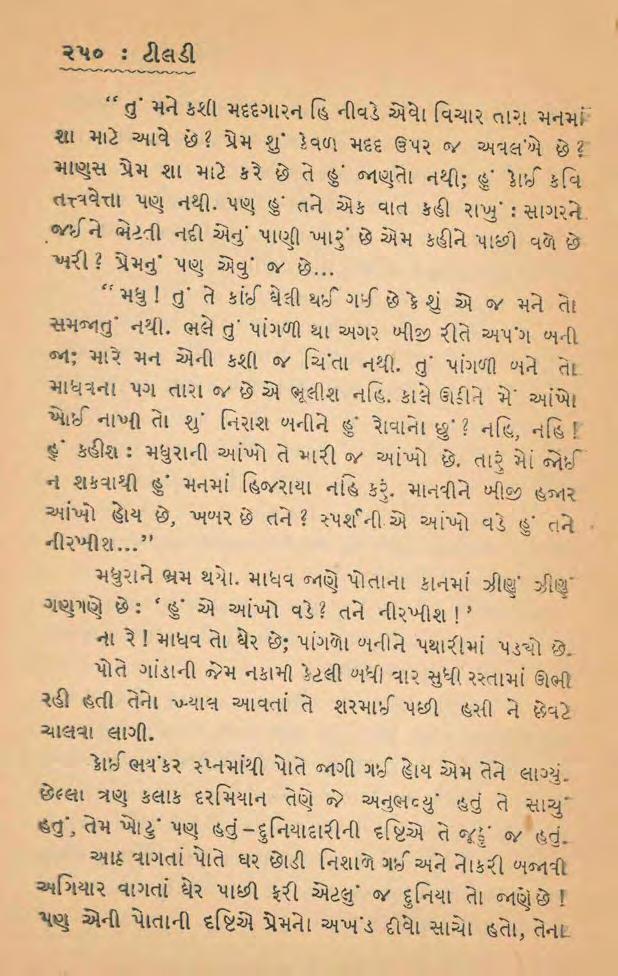 ૨૫૦ : ટીલડી
“ તું મને કશી મદદગારન હિ નીવડે એવો વિચાર તારા મનમાં
શા માટે આવે છે? પ્રેમ શું કેવળ મદદ ઉપર જ અવલંબે છે?
માણસ પ્રેમ શા માટે કરે છે તે હું જાણતો નથી; હું કોઈ કવિ
તત્ત્વવેત્તા પણ નથી. પણ હું તને એક વાત કહી રાખું : સાગરને
જઈને ભેટતી નદી એનું પાણી ખારું છે એમ કહીને પાછી વળે છે
ખરી? પ્રેમનું પણ એવું જ છે...
“ મધુ ! તું તે કાંઈ ઘેલી થઈ ગઈ છે કે શું એ જ મને તો
સમજાતું નથી. ભલે તું પાંગળી થા અગર બીજી રીતે અપંગ બની
જા; મારે મન એની કશી જ ચિંતા નથી. તું પાંગળી બને તો
માધવના પગ તારા જ છે એ ભૂલીશ નહિ. કાલે ઊઠીને મેં આંખો
ખોઈ નાખી તો શું નિરાશ બનીને હું રોવાનો છું? નહિ, નહિ !
હું કહીશ : મધુરાની આંખો તે મારી જ આંખો છે. તારું મોં જોઈ
ન શકવાથી હું મનમાં હિજરાયા નહિ કરું. માનવીને બીજી હજાર
આંખો હોય છે, ખબર છે તને? સ્પર્શની એ આંખો વડે હું તને
નીરખીશ...”
મધુરાને ભ્રમ થયો. માધવ જાણે પોતાના કાનમાં ઝીણું ઝીણું
ગણગણે છે : ‘ હું એ આંખો વડે? તને નીરખીશ ! ’
ના રે ! માધવ તો ઘેર છે; પાંગળો બનીને પથારીમાં પડ્યો છે.
પોતે ગાંડાની જેમ નકામી કેટલી બધી વાર સુધી રસ્તામાં ઊભી
રહી હતી તેનો ખ્યાલ આવતાં તે શરમાઈ પછી હસી ને છેવટે
ચાલવા લાગી.
કોઈ ભયંકર સ્વપ્નમાંથી પોતે જાગી ગઈ હોય એમ તેને લાગ્યું.
છેલ્લા ત્રણ કલાક દરમિયાન તેણે જે અનુભવ્યું હતું તે સાચું
હતું, તેમ ખોટું પણ હતું – દુનિયાદારીની દૃષ્ટિએ તે જૂઠ્ઠું જ હતું.
આઠ વાગતાં પોતે ઘર છોડી નિશાળે ગઈ અને નોકરી બજાવી
અગિયાર વાગતાં ઘેર પાછી ફરી એટલું જ દુનિયા તો જાણે છે !
પણ એની પોતાની દૃષ્ટિએ પ્રેમનો અખંડ દીવો સાચો હતો, તેના